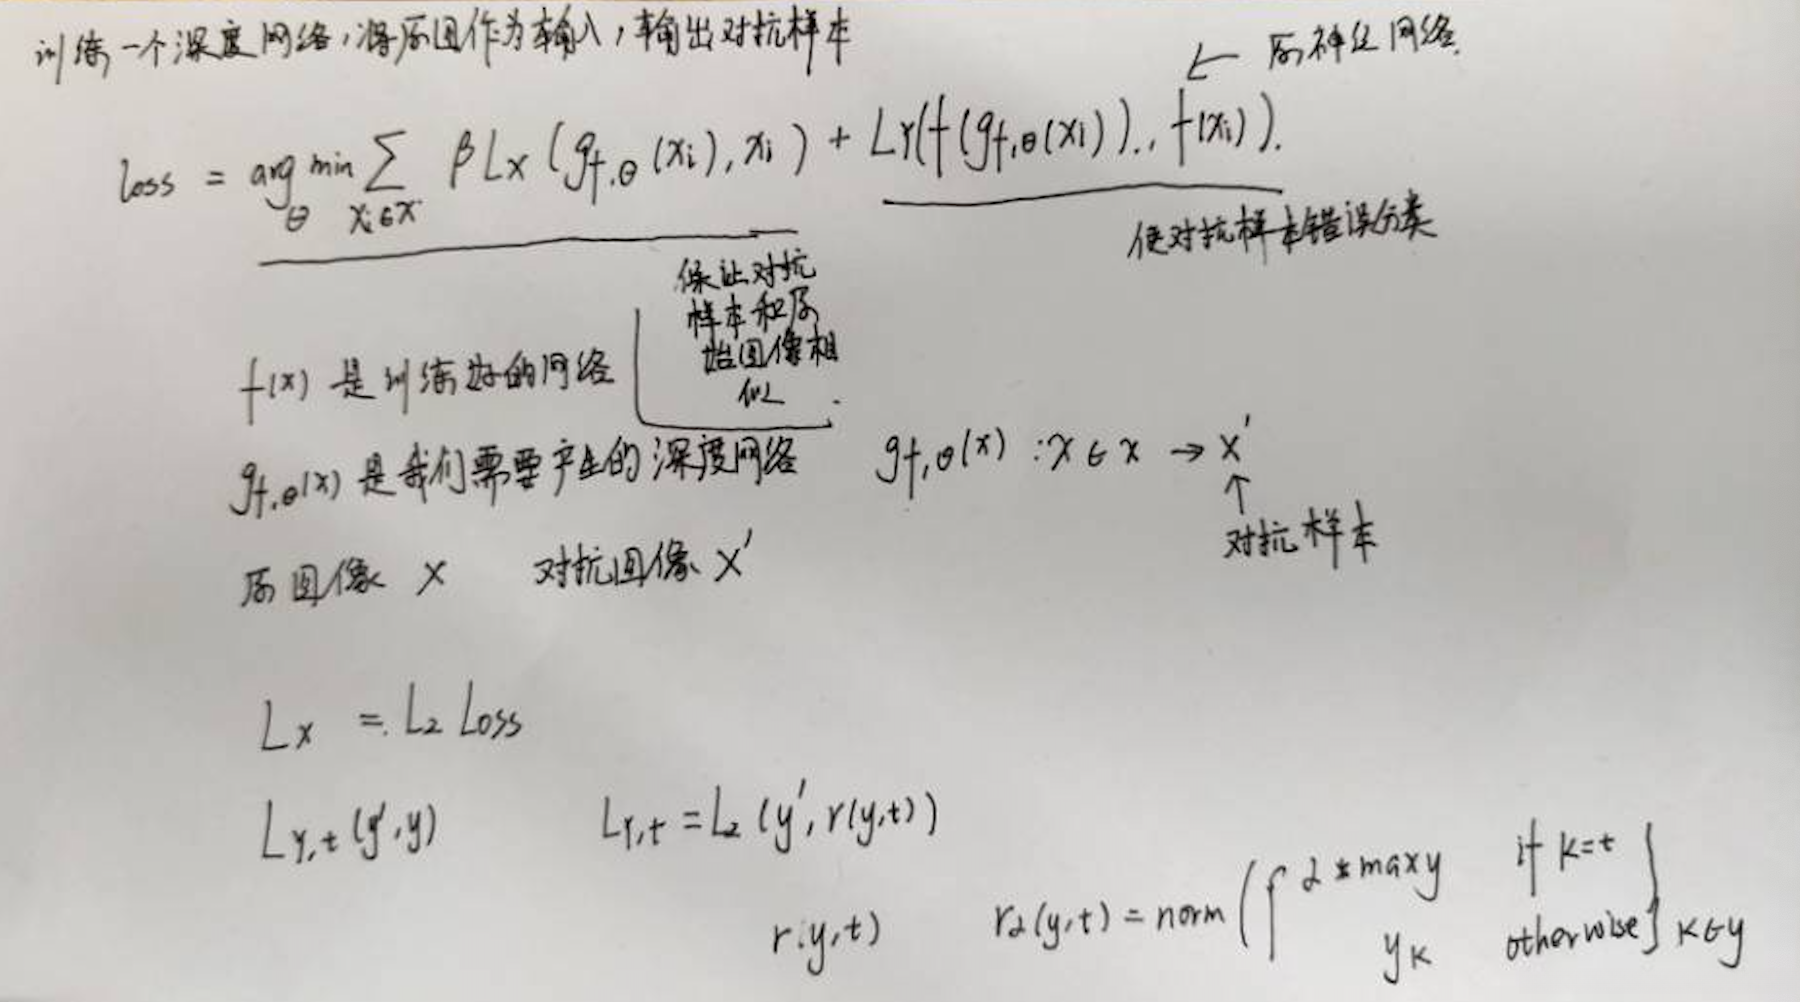 训练一个深度网络，将原图作为输入，输出对抗样本
← 原神经网络.
loss = arg min_θ Σ_{xi∈x} β Lx (g_{f,θ}(xi), xi) + LY(f(g_{f,θ}(xi)), f(xi)).
使对抗样本错误分类
保证对抗
样本和原
始图像相
似.
f(x) 是训练好的网络
g_{f,θ}(x) 是我们需要产生的深度网络
g_{f,θ}(x) : x ∈ x → x'
↑
对抗样本
原图像 x 对抗图像 x'
Lx = L2 Loss
L_{Y,t}(y', y)
L_{Y,t} = L2 (y', r(y,t))
r(y,t)
rα(y,t) = norm ({ α * max y if k=t
yk otherwise } k∈y